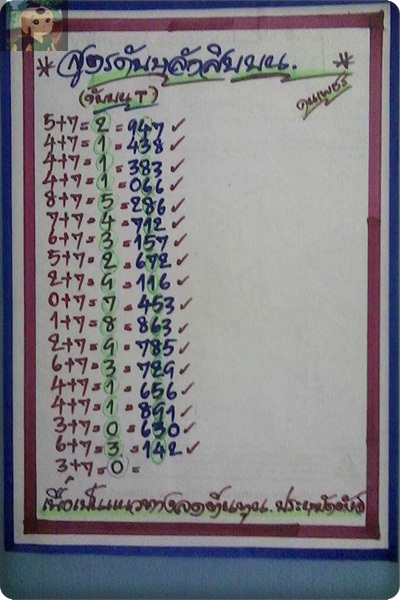 * สูตรดับบนหลักสิบบน. *
(ดับบน T)
คนเพชร
5+7=2=947 ✓
4+7=1=438 ✓
4+7=1=383 ✓
4+7=1=066 ✓
8+7=5=286 ✓
7+7=4=712 ✓
6+7=3=157 ✓
5+7=2=672 ✓
2+7=9=116 ✓
0+7=7=453 ✓
1+7=8=863 ✓
2+7=9=785 ✓
6+7=3=729 ✓
4+7=1=656 ✓
4+7=1=891 ✓
3+7=0=630 ✓
6+7=3=142 ✓
3+7=0=
เพื่อเป็นแนวทางลดต้นทุน.